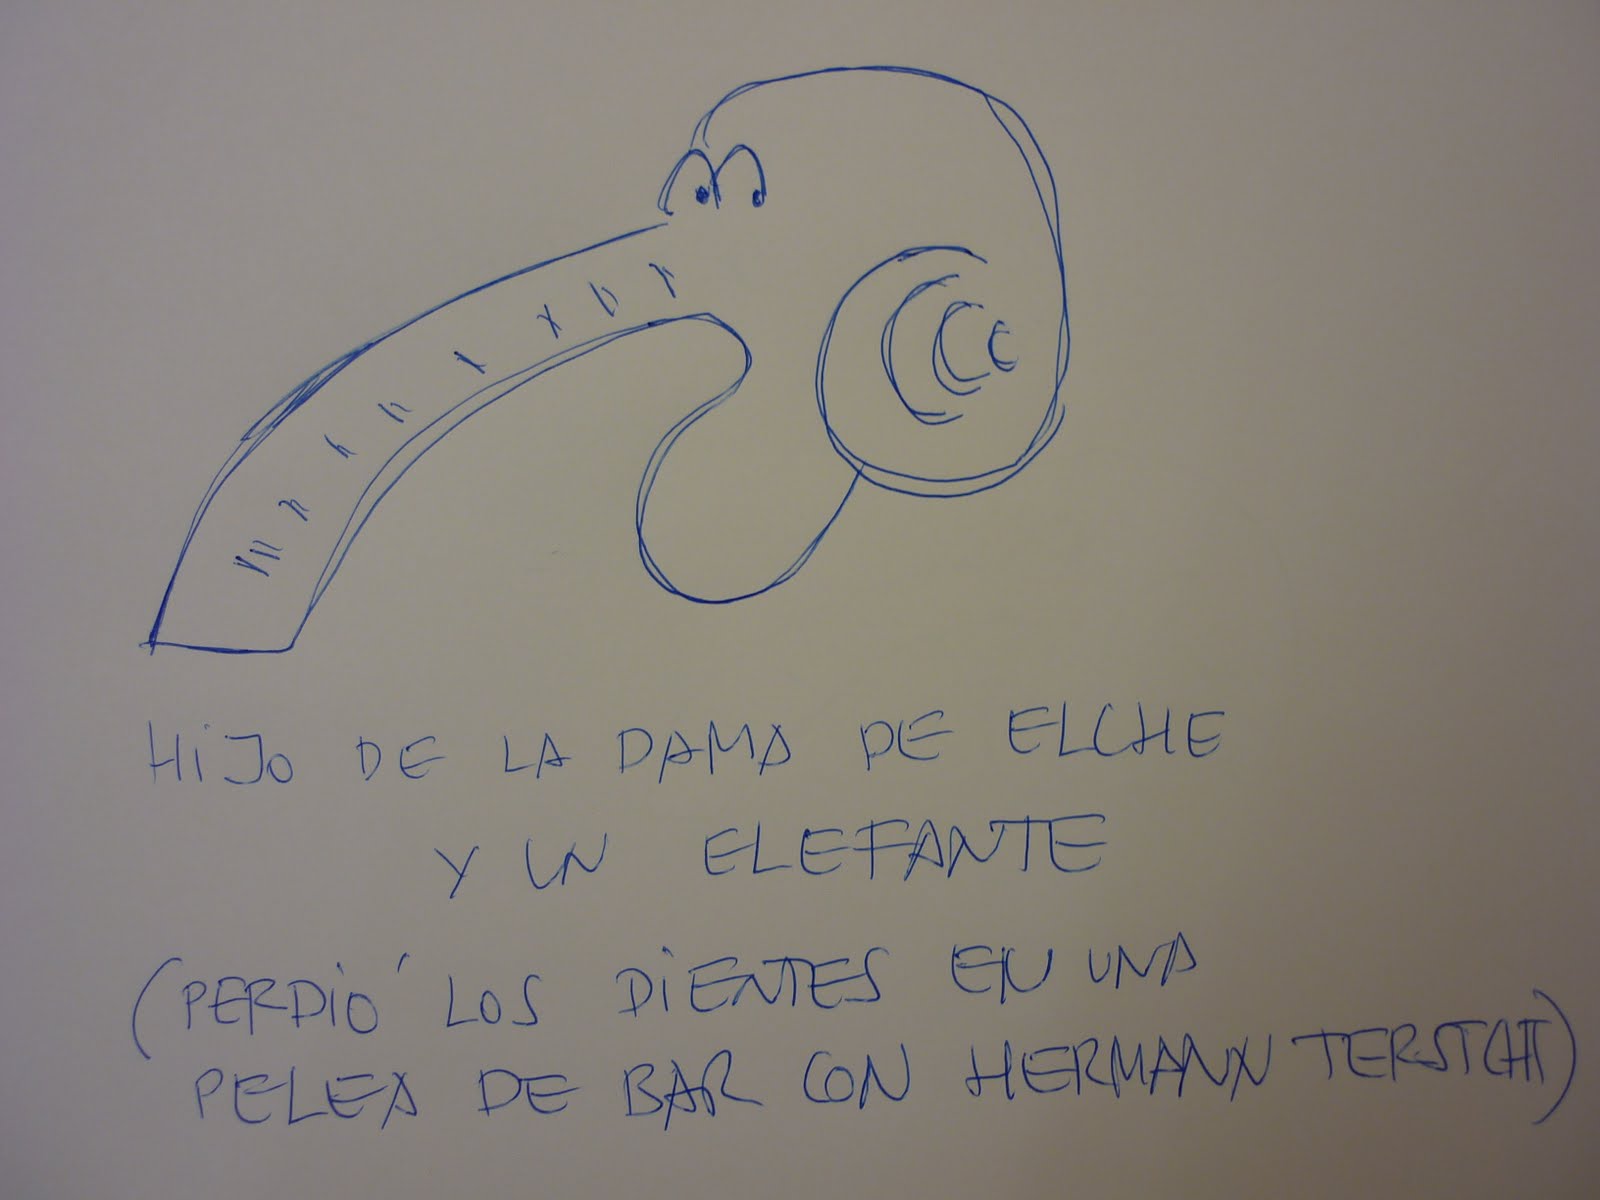 HIJO DE LA DAMA DE ELCHE
Y UN ELEFANTE
(PERDIÓ LOS DIENTES EN UNA
PELEA DE BAR CON HERMANN TERSTCHT)